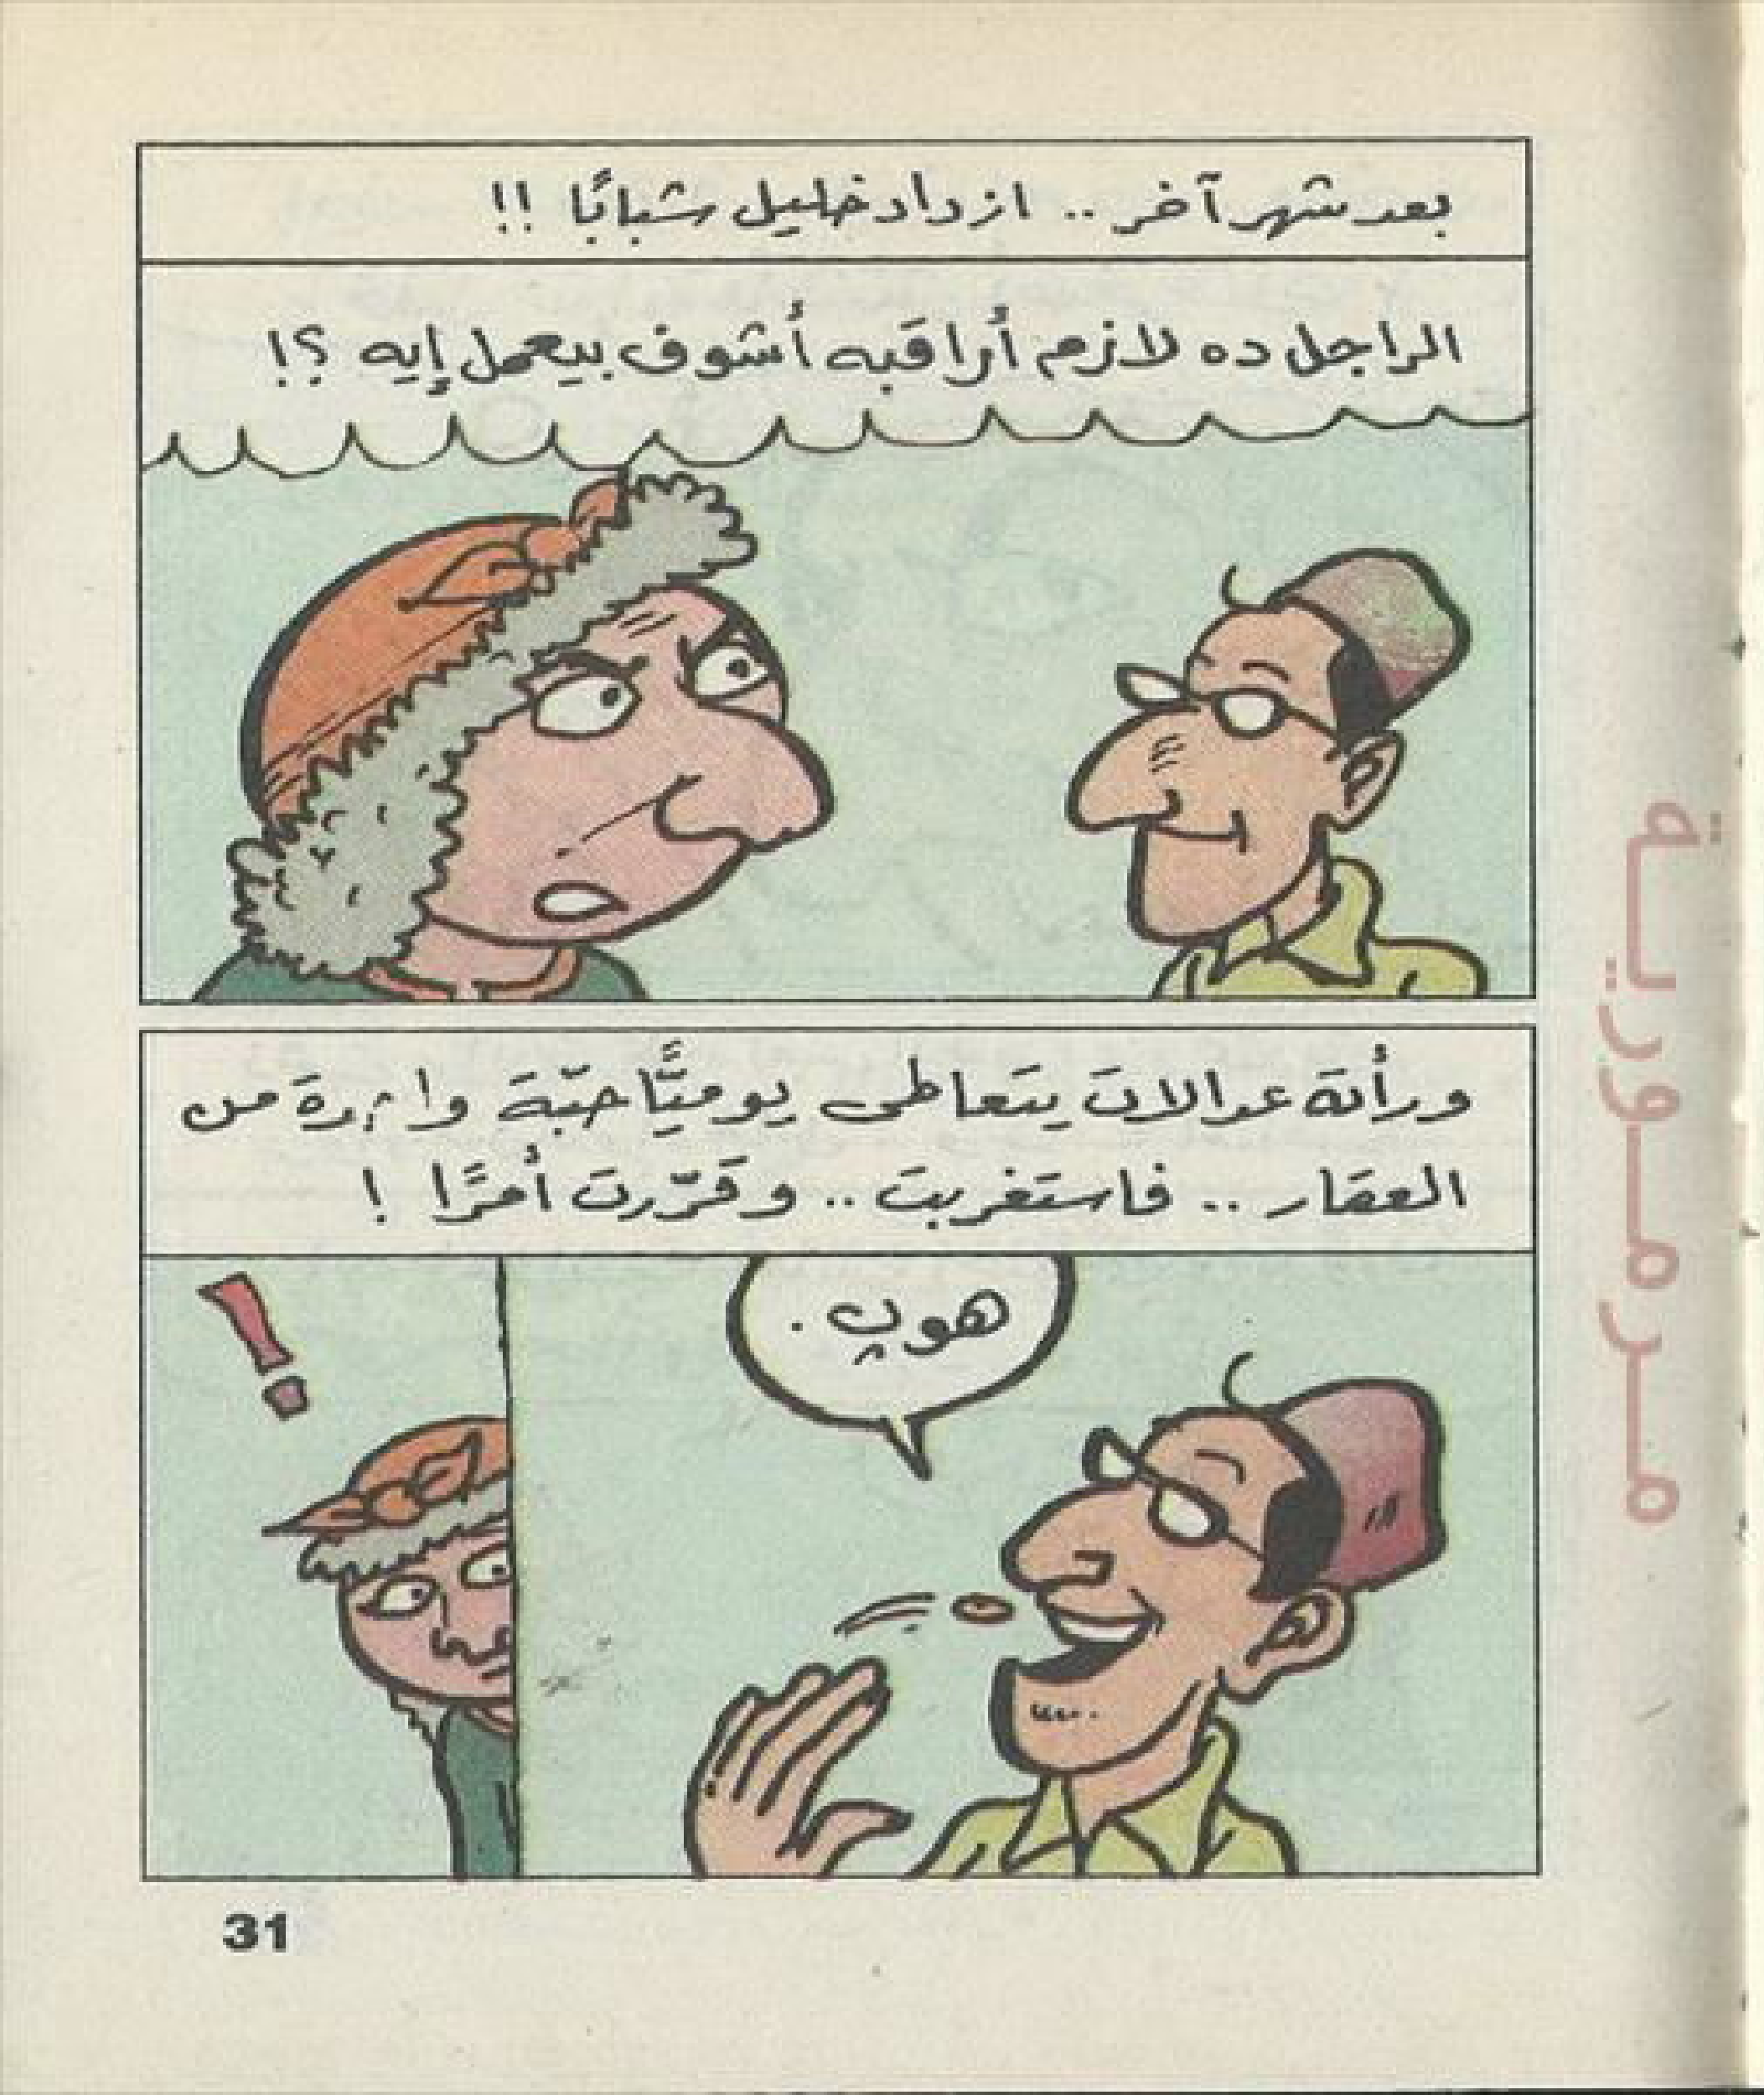 بعد شهر آخر .. ازداد خليل شبابًا !!
الراجل ده لازم أراقبه أشوف بيعمل إيه ؟!
ورأته عدالات يتعاطى يوميًّا حبّة واحدة من
العقار .. فاستغربت .. وقرّرت أمرًا !
هوپ .
31
مرمورية